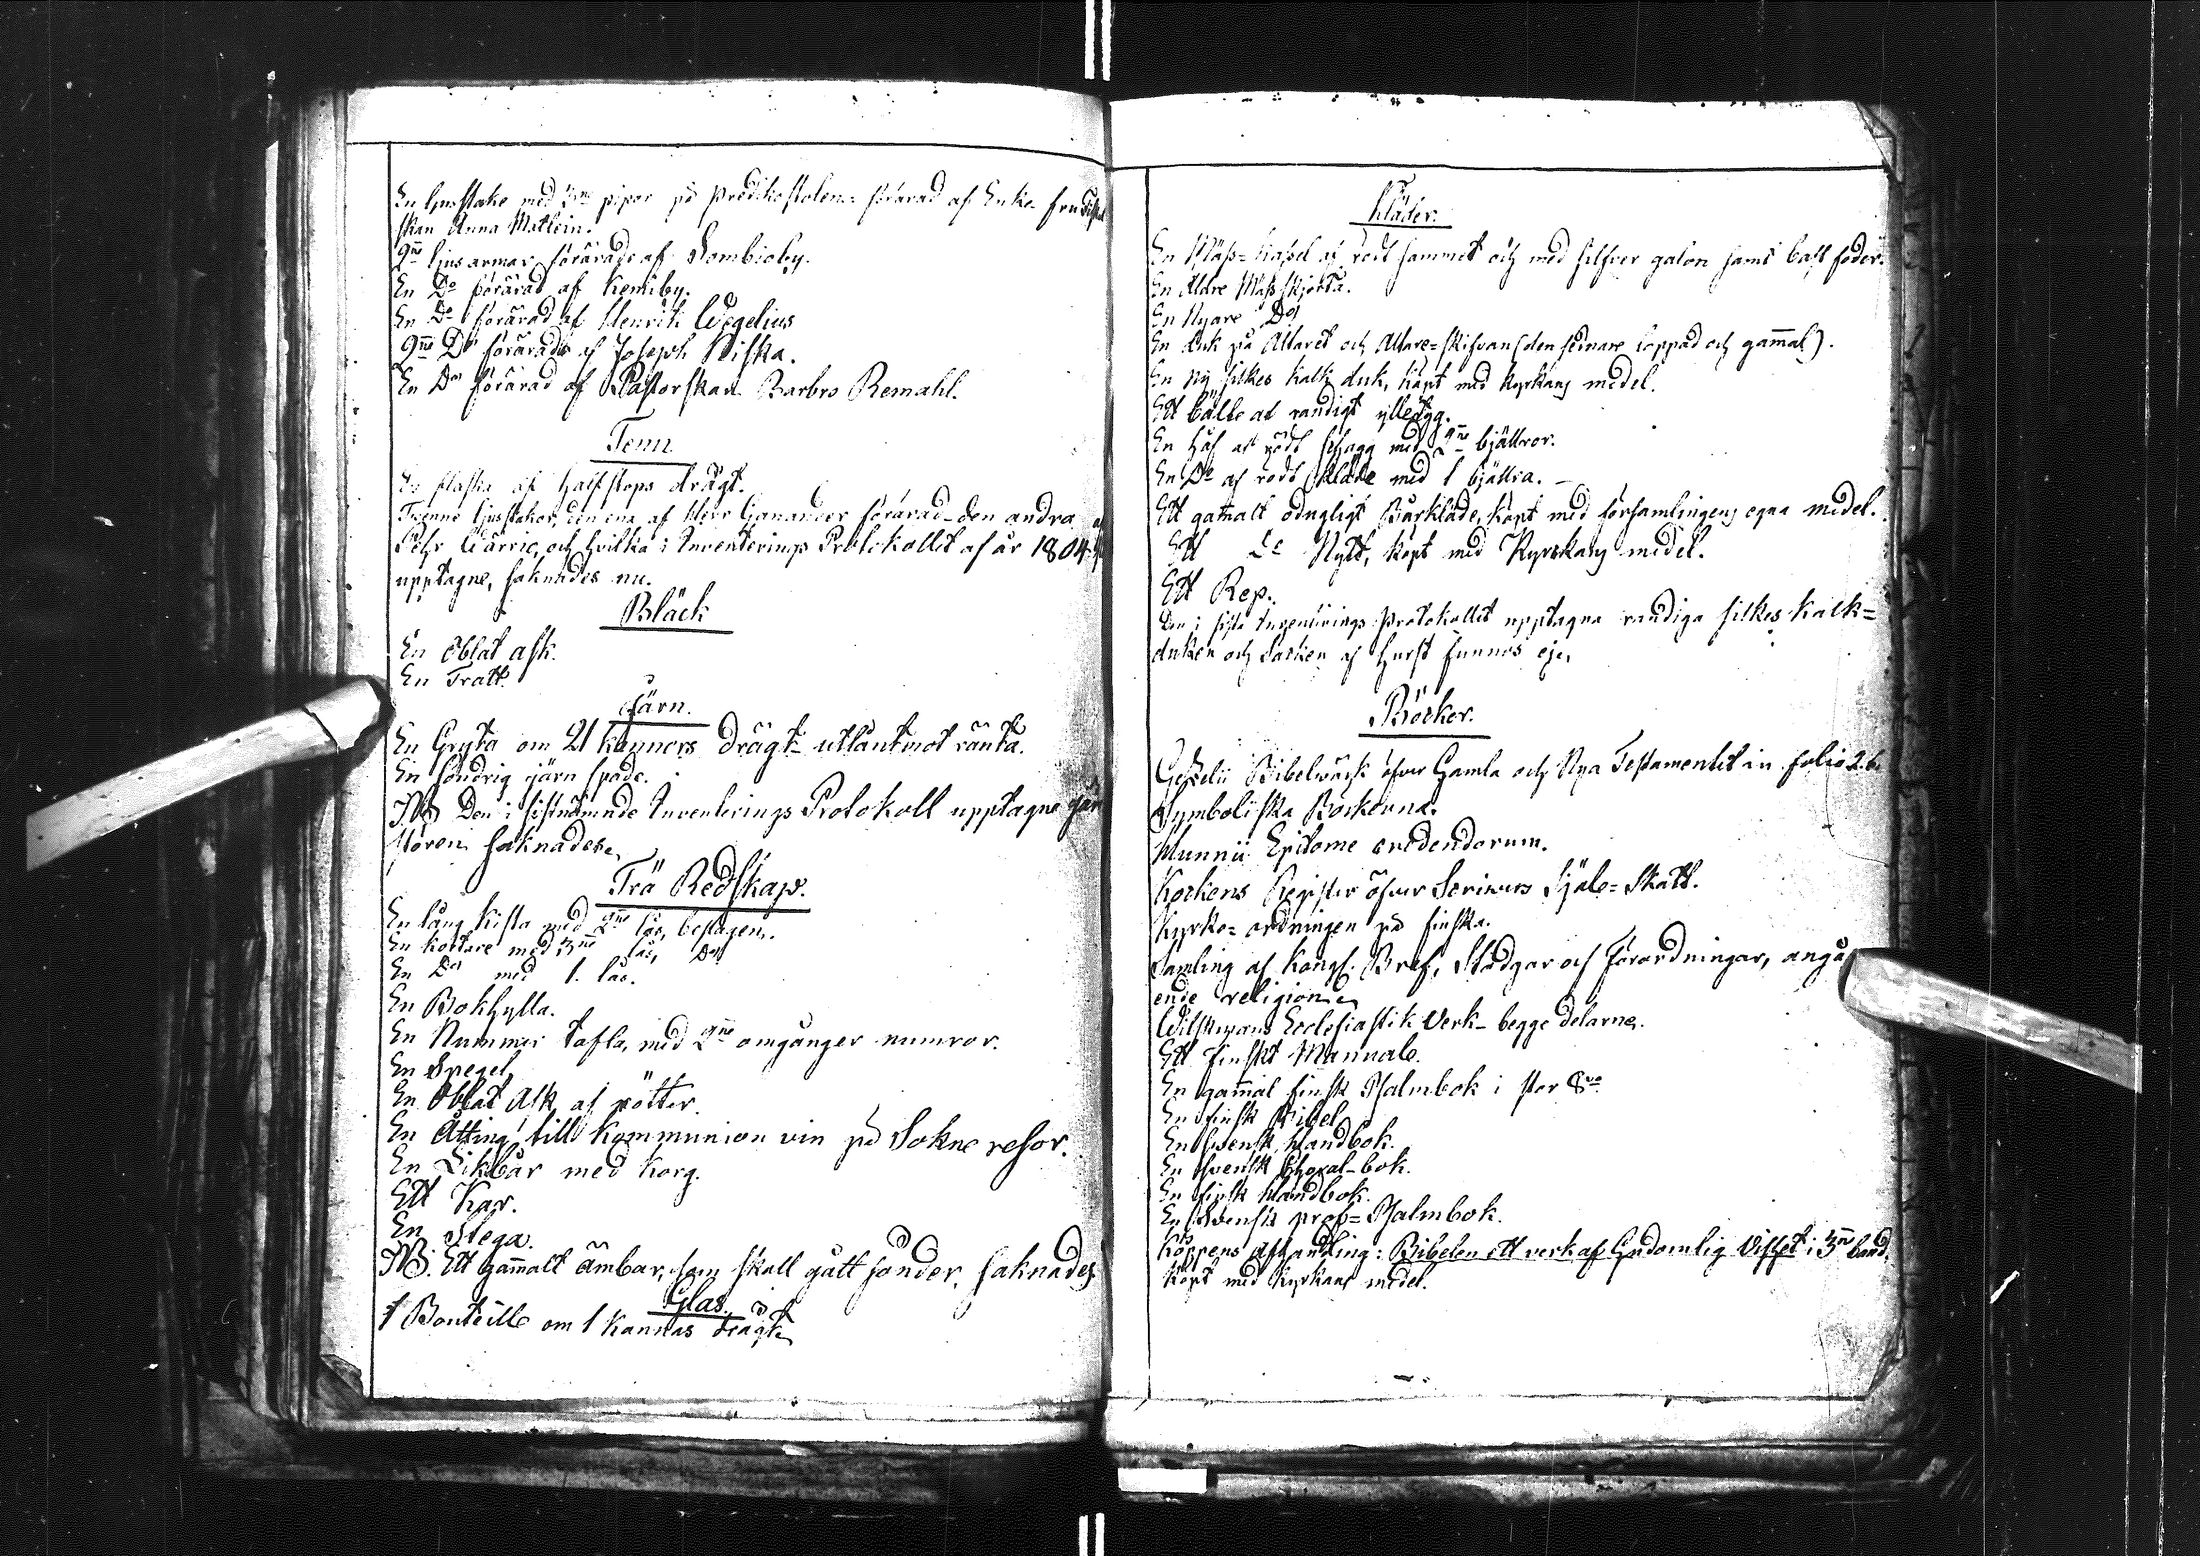 En ljusstake med 3ne pipor på Predikostolen förärad af Enke fru
skan Anna Matlein.
2ne ljus armar förärade af Sombioby.
En Do förärad af Kemiby.
En Do förärad af Henrik Wegelius
2ne Do förärade af Joseph Niska.
En Do förärad af Pastorskan Barbro Remahl.
Tenn
En flaska af halfstops drägt.
Tvenne ljusstakar, den ena af Herr Ganander förärad - den andra af
Pehr Wärric, och hvilka i Inventerings Protokollet af år 1804
upptagne, saknades nu.
Bläck
En Oblat ask.
En Tratt.
Järn.
En Gryta om 21 kannors drägt utlånt mot ränta.
En söndrig järn spade.
NB Den i sistnämnde Inventerings Protokoll upptagne jär
stören saknades.
Trä Redskap.
En lång kista med 2ne lås, beslagen.
En kortare med 3ne lås, Do
En Do med 1. lås.
En Bokhylla.
En Nummer tafla, med 2ne omgånger numror.
En Spegel.
En Oblat Ask af rötter.
En Åtting till kommunion vin på Sokne resor.
En Likbår med korg.
Ett Kar.
En Stega.
NB. Ett gammalt ämbar, som skall gått sönder, saknades
Glas.
1 Bouteille om 1 kannas drägt
Kläder.
En Mäss-hakel af rödt sammet och med silfver galon samt taft foder.
En äldre Mässskjorta.
En Nyare Do
En duk på Altaret och Altare-skifvan (den senare lappad och gammal).
En ny silkes kalk duk, köpt med kyrkans medel.
Ett bälte af randigt ylletyg.
En håf af rödt schagg med 2ne bjällror.
En Do af rödt kläde med 1 bjällra.
Ett gammalt odugligt Bårkläde, köpt med församlingens egna medel.
Ett Do Nytt, köpt med Kyrkans medel.
Ett Rep.
Den i sista Inventerings Protokollet upptagna randiga silkes kalk=
duken och af funnos ej.
Böcker.
Gezelii Bibelwerk öfver Gamla och Nya Testamentet in folio 2.
Symboliska Böckerna.
Munnii Epitome credendorum.
Kockens Register öfver Scrivers Själe-Skatt.
Kyrko-ordningen på finska.
Samling af Kongl. Bref, Stadgar och Förordningar, angå
ende religionen
Wilskmans Ecclesiastik Verk - begge delarne.
Ett finskt Manuale.
En gammal finsk Psalmbok i stor 8vo
En finsk Bibel
En svensk Handbok.
En svensk Choral-bok.
En finsk Handbok.
En svensk prof-Psalmbok.
Köppens afhandling: Bibelen ett verk af Gudomlig Vishet i 3ne band,
köpt med kyrkans medel.